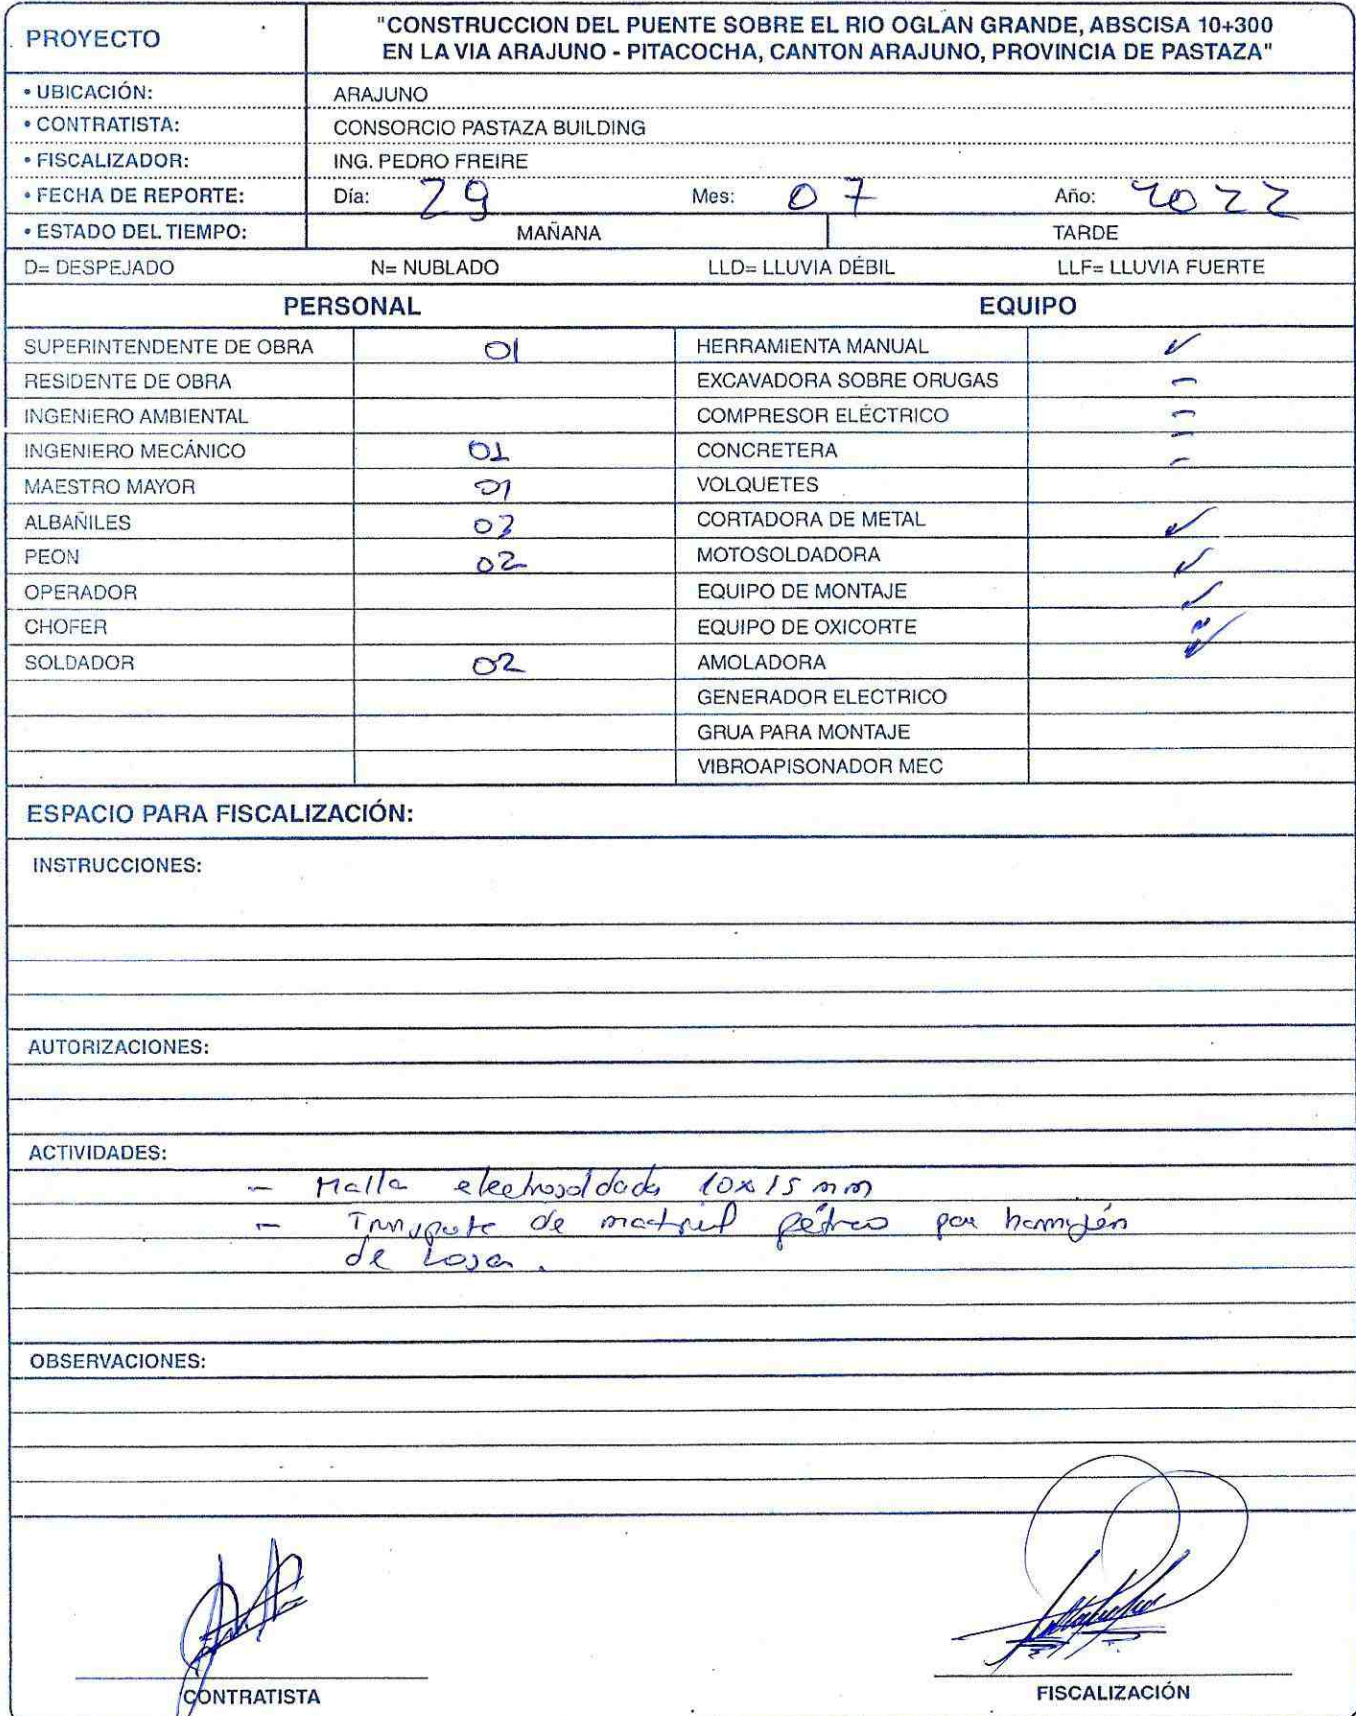 PROYECTO
"CONSTRUCCION DEL PUENTE SOBRE EL RIO OGLAN GRANDE, ABSCISA 10+300
EN LA VIA ARAJUNO - PITACOCHA, CANTON ARAJUNO, PROVINCIA DE PASTAZA"
• UBICACIÓN: ARAJUNO
• CONTRATISTA: CONSORCIO PASTAZA BUILDING
• FISCALIZADOR: ING. PEDRO FREIRE
• FECHA DE REPORTE: Día: 29 Mes: 07 Año: 2022
• ESTADO DEL TIEMPO: MAÑANA TARDE
D= DESPEJADO N= NUBLADO LLD= LLUVIA DÉBIL LLF= LLUVIA FUERTE
PERSONAL EQUIPO
SUPERINTENDENTE DE OBRA 01 HERRAMIENTA MANUAL ✓
RESIDENTE DE OBRA EXCAVADORA SOBRE ORUGAS -
INGENIERO AMBIENTAL COMPRESOR ELÉCTRICO -
INGENIERO MECÁNICO 01 CONCRETERA -
MAESTRO MAYOR 01 VOLQUETES -
ALBAÑILES 03 CORTADORA DE METAL ✓
PEON 02 MOTOSOLDADORA ✓
OPERADOR EQUIPO DE MONTAJE ✓
CHOFER EQUIPO DE OXICORTE
SOLDADOR 02 AMOLADORA ✓
GENERADOR ELECTRICO
GRUA PARA MONTAJE
VIBROAPISONADOR MEC
ESPACIO PARA FISCALIZACIÓN:
INSTRUCCIONES:
AUTORIZACIONES:
ACTIVIDADES:
- Malla electrosoldada 10x15 mm
- Transporte de material pétreo por hormigón
de Losa.
OBSERVACIONES:
CONTRATISTA FISCALIZACIÓN